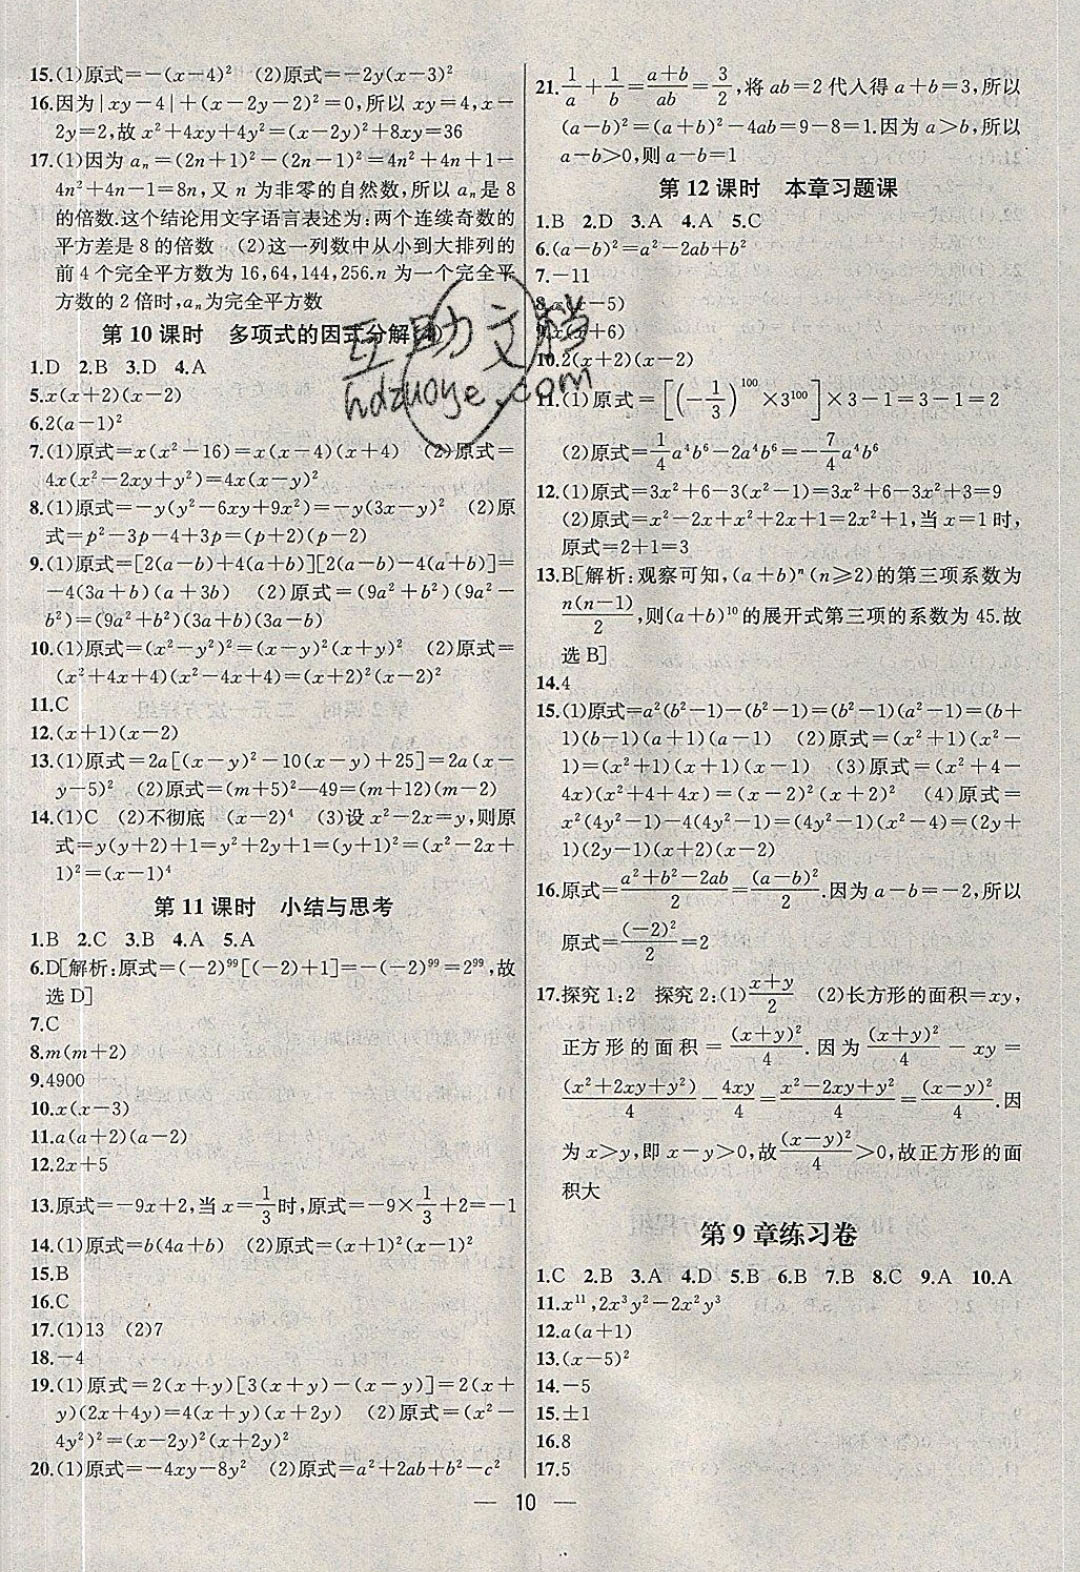 15.(1)原式=-(x-4)² (2)原式=-2y(x-3)²
16.因为|xy-4|+(x-2y-2)²=0,所以 xy=4,x-
2y=2,故 x²+4xy+4y²=(x-2y)²+8xy=36
17.(1)因为 aₙ=(2n+1)²-(2n-1)²=4n²+4n+1-
4n²+4n-1=8n,又 n 为非零的自然数,所以 aₙ是 8
的倍数.这个结论用文字语言表述为:两个连续奇数的
平方差是 8 的倍数 (2)这一列数中从小到大排列的
前 4 个完全平方数为 16,64,144,256.n 为一个完全平
方数的 2 倍时,aₙ为完全平方数
第 10 课时 多项式的因式分解(4)
1.D 2.B 3.D 4.A
5.x(x+2)(x-2)
6.2(a-1)²
7.(1)原式=x(x²-16)=x(x-4)(x+4) (2)原式=
4x(x²-2xy+y²)=4x(x-y)²
8.(1)原式=-y(y²-6xy+9x²)=-y(3x-y)² (2)原
式=p²-3p-4+3p=(p+2)(p-2)
9.(1)原式=[2(a-b)+4(a+b)][2(a-b)-4(a+b)]=
-4(3a+b)(a+3b) (2)原式=(9a²+b²)(9a²-
b²)=(9a²+b²)(3a+b)(3a-b)
10.(1)原式=(x²-y²)²=(x-y)²(x+y)² (2)原式=
(x²+4x+4)(x²-4x+4)=(x+2)²(x-2)²
11.C
12.(x+1)(x-2)
13.(1)原式=2a[(x-y)²-10(x-y)+25]=2a(x-
y-5)² (2)原式=(m+5)²—49=(m+12)(m-2)
14.(1)C (2)不彻底 (x-2)⁴ (3)设 x²-2x=y,则原
式=y(y+2)+1=y²+2y+1=(y+1)²=(x²-2x+
1)²=(x-1)⁴
第 11 课时 小结与思考
1.B 2.C 3.B 4.A 5.A
6.D[解析:原式=(-2)⁹⁹[(-2)+1]=-(-2)⁹⁹=2⁹⁹,故
选 D]
7.C
8.m(m+2)
9.4900
10.x(x-3)
11.a(a+2)(a-2)
12.2x+5
13.原式=-9x+2,当 x=1/3时,原式=-9×1/3+2=-1
14.(1)原式=b(4a+b) (2)原式=(x+1)²(x-1)²
15.B
16.C
17.(1)13 (2)7
18.-4
19.(1)原式=2(x+y)[3(x+y)-(x-y)]=2(x+
y)(2x+4y)=4(x+y)(x+2y) (2)原式=(x²-
4y²)²=(x-2y)²(x+2y)²
20.(1)原式=-4xy-8y² (2)原式=a²+2ab+b²-c²
21.1/a+1/b=(a+b)/ab=3/2,将 ab=2 代入得 a+b=3,所以
(a-b)²=(a+b)²-4ab=9-8=1.因为 a>b,所以
a-b>0,则 a-b=1
第 12 课时 本章习题课
1.B 2.D 3.A 4.A 5.C
6.(a-b)²=a²-2ab+b²
7.-11
8.x(x-5)
9.x(x+6)
10.2(x+2)(x-2)
11.(1)原式=[(-1/3)¹⁰⁰×3¹⁰⁰]×3-1=3-1=2
(2)原式=1/4a⁴b⁶-2a⁴b⁶=-7/4a⁴b⁶
12.(1)原式=3x²+6-3(x²-1)=3x²+6-3x²+3=9
(2)原式=x²-2x+x²+2x+1=2x²+1,当 x=1 时,
原式=2+1=3
13.B[解析:观察可知,(a+b)ⁿ(n≥2)的第三项系数为
n(n-1)/2,则(a+b)¹⁰的展开式第三项的系数为 45.故
选 B]
14.4
15.(1)原式=a²(b²-1)-(b²-1)=(b²-1)(a²-1)=(b+
1)(b-1)(a+1)(a-1) (2)原式=(x²+1)(x²-
1)=(x²+1)(x+1)(x-1) (3)原式=(x²+4-
4x)(x²+4+4x)=(x-2)²(x+2)² (4)原式=
x²(4y²-1)-4(4y²-1)=(4y²-1)(x²-4)=(2y+
1)(2y-1)(x+2)(x-2)
16.原式=(a²+b²-2ab)/2=(a-b)²/2.因为 a-b=-2,所以
原式=(-2)²/2=2
17.探究 1:2 探究 2:(1)(x+y)/2 (2)长方形的面积=xy,
正方形的面积=(x+y)²/4.因为(x+y)²/4-xy=
(x²+2xy+y²)/4-4xy/4=(x²-2xy+y²)/4=(x-y)²/4.因
为 x>y,即 x-y>0,故(x-y)²/4>0,故正方形的面
积大
第 9 章练习卷
1.C 2.B 3.A 4.D 5.B 6.B 7.B 8.C 9.A 10.A
11.x¹¹,2x³y²-2x²y³
12.a(a+1)
13.(x-5)²
14.-5
15.±1
16.8
17.5
— 10 —
互助文档
hdzuoye.com